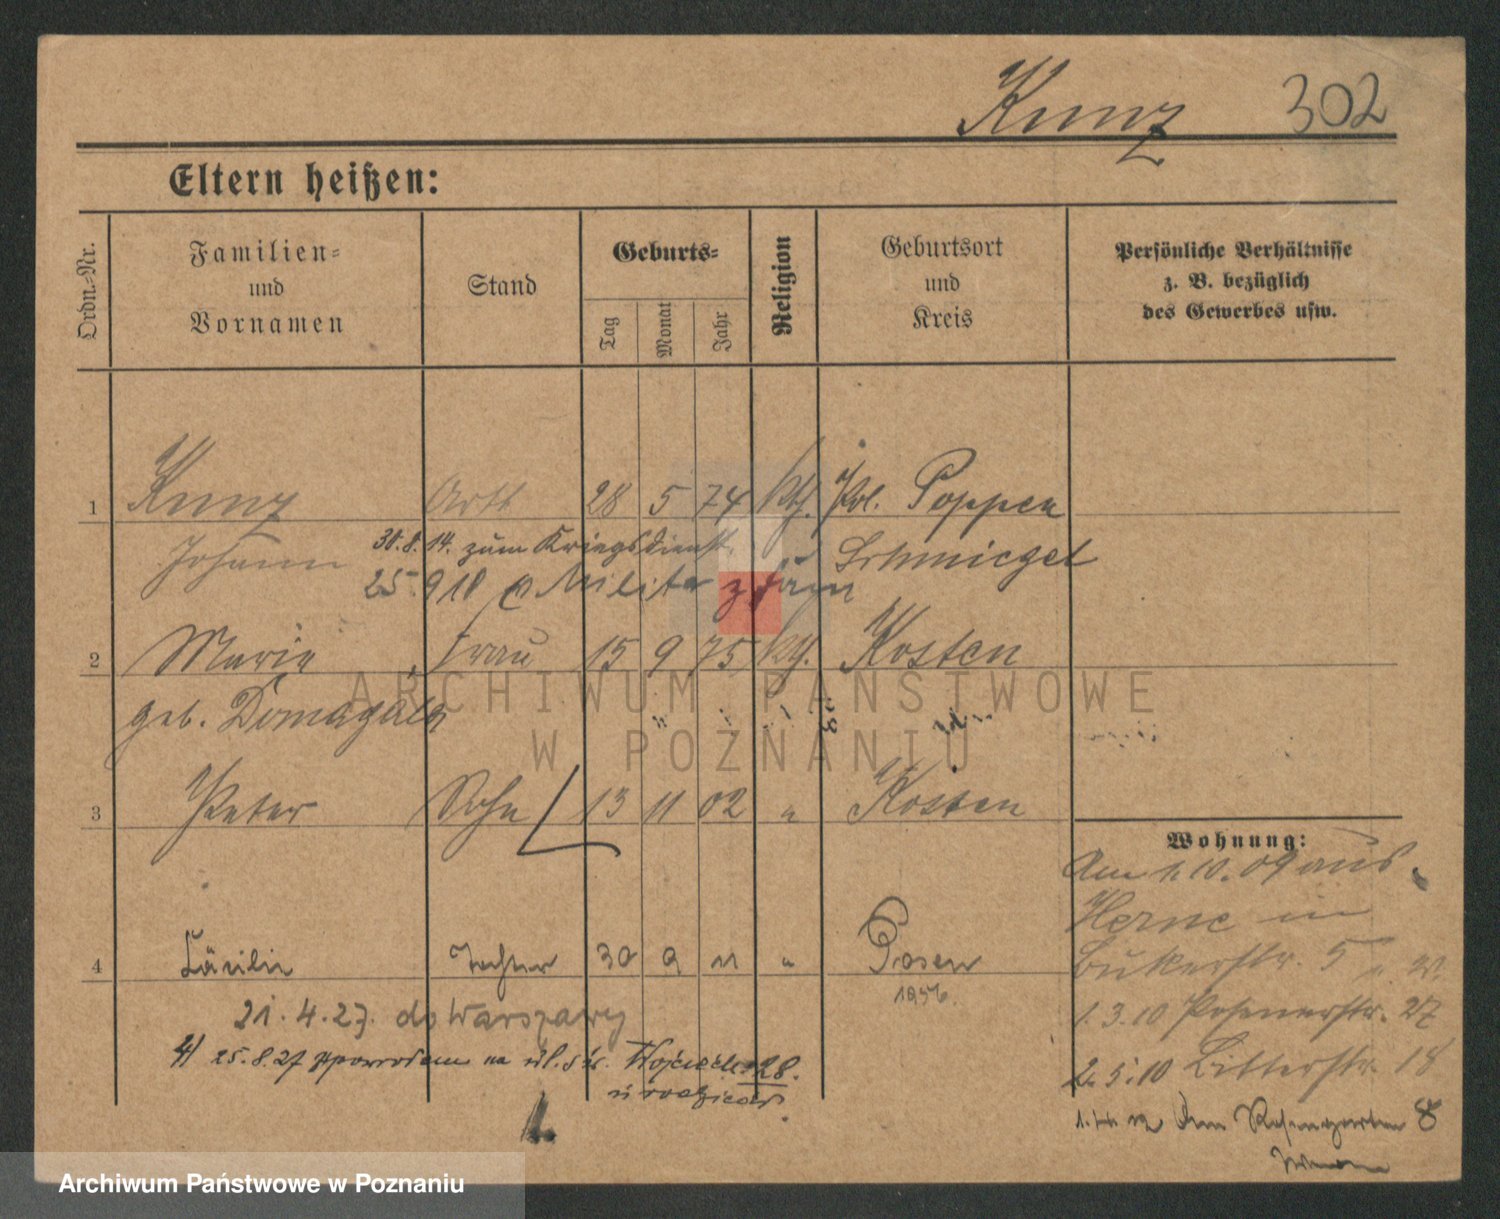 Kunz 302
Eltern heißen:
Ordn.-Nr.
Familien-
und
Vornamen
Stand
Geburts-
Tag
Monat
Jahr
Religion
Geburtsort
und
Kreis
Persönliche Verhältnisse
z. B. bezüglich
des Gewerbes usw.
1 Kunz Arb. 28 5 74 kth. Pol. Poppen
Johann 30.8.14. zum Kriegsdienst. Schmiegel
25. 9 18 v Militär
2 Marie Frau 15 9 75 kth. Kosten
geb. Domagala
3 Peter Sohn 13 11 02 " Kosten
Wohnung:
Am 1.10.09 aus
Herne in
Bukerstr. 5
4 Cäcilie Tochter 30 9 11 " Posen
1.3.10 Posenerstr. 27
21.4.27. do Warszawy
4) 25.8.27 z powrotem na ul. Św. Wojciech 28.
u rodziców.
2.5.10 Bitterstr. 18
1. 12 Am Rosengarten 8
ARCHIWUM PAŃSTWOWE
W POZNANIU
Archiwum Państwowe w Poznaniu